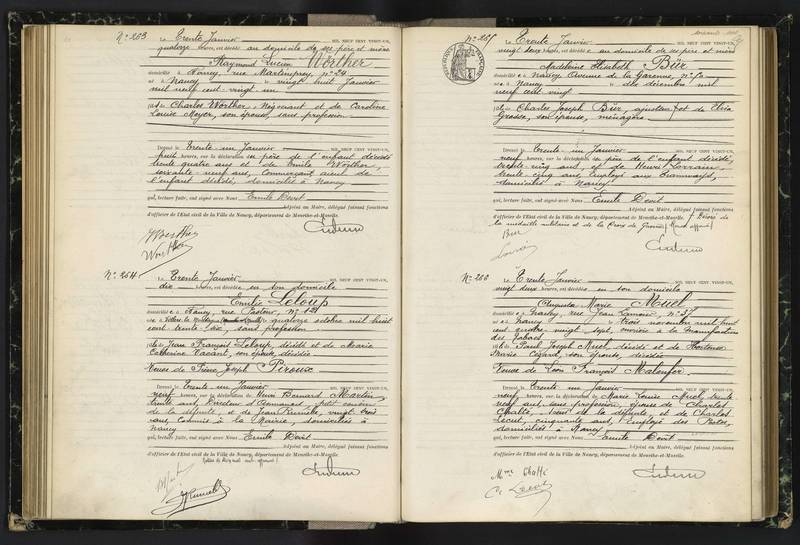 N° 253 Le Trente Janvier MIL NEUF CENT VINGT-UN,
quatorze heures, est décédé au domicile de ses père et mère
Raymond Lucien Wörther
domicilié à Nancy, rue Martimprey, n° 24
né à Nancy vingt huit Janvier
mil neuf cent vingt un
fils de Charles Wörther, Négociant et de Caroline
Louise Meyer, son épouse, sans profession
Dressé le Trente un Janvier MIL NEUF CENT VINGT-UN,
heures, sur la déclaration du père de l'enfant décédé
trente quatre ans et de Emile Wörther,
soixante neuf ans, Commerçant aïeul de
l'enfant décédé, domiciliés à Nancy
qui, lecture faite, ont signé avec Nous Emile Devit
Adjoint au Maire, délégué faisant fonctions
d'officier de l'Etat civil de la Ville de Nancy, département de Meurthe-et-Moselle.
Wörther
N° 254 Le Trente Janvier MIL NEUF CENT VINGT-UN,
dix heures, est décédée en son domicile
Emilie Leloup
domiciliée à Nancy, rue Pasteur, n° 121
quatorze octobre mil huit
cent trente six, sans profession
fille de Jean François Leloup, décédé et de Marie
Catherine Vacant, son épouse, décédée
Veuve de Pierre Joseph Piroux
Dressé le Trente un Janvier MIL NEUF CENT VINGT-UN,
neuf heures, sur la déclaration de Henri Bernard Martin
trente ans, petit cousin
de la défunte et de Jean vingt trois
ans, Commis à la Mairie, domiciliés à
Nancy
qui, lecture faite, ont signé avec Nous Emile Devit
Adjoint au Maire, délégué faisant fonctions
d'officier de l'Etat civil de la Ville de Nancy, département de Meurthe-et-Moselle.
N° 255 Le Trente Janvier MIL NEUF CENT VINGT-UN,
vingt deux heures, est décédée au domicile de ses père et mère
Madeleine Elisabeth Bür
domiciliée à Nancy Avenue de la Garenne, n°
née à Nancy dix décembre mil
neuf cent vingt
fille de Charles Joseph Bür, ajusteur et de
Grosse, son épouse, ménagère
Dressé le Trente un Janvier MIL NEUF CENT VINGT-UN,
neuf heures, sur la déclaration du père de l'enfant décédée,
trente cinq ans, et de Henri Lorrain
trente cinq ans, employé aux tramways,
domiciliés à Nancy
qui, lecture faite, ont signé avec Nous Emile Devit
Adjoint au Maire, délégué faisant fonctions
d'officier de l'Etat civil de la Ville de Nancy, département de Meurthe-et-Moselle. Décoré de
la médaille militaire et de la Croix de Guerre
Bür
Lorrain
N° 256 Le Trente Janvier MIL NEUF CENT VINGT-UN,
vingt deux heures, est décédée en son domicile
Augusta Marie Muel
domiciliée à Nancy, rue Jean Lamour, n° 37
née à Nancy trois novembre mil huit
cent quatre vingt sept, ouvrière à la manufacture
des Tabacs
fille de Paul Joseph Muel, décédé et de Hortense
Marie son épouse, décédée
Veuve de Léon François Malenfer
Dressé le Trente un Janvier MIL NEUF CENT VINGT-UN,
neuf heures, sur la déclaration de Marie Louise Muel, trente
neuf ans, sans profession, épouse de Charles
Chatté, sœur de la défunte, et de Charles
Lecut, cinquante ans, employé des Postes,
domiciliés à Nancy
qui, lecture faite, ont signé avec Nous Emile Devit
Adjoint au Maire, délégué faisant fonctions
d'officier de l'Etat civil de la Ville de Nancy, département de Meurthe-et-Moselle.
Mme Chatté